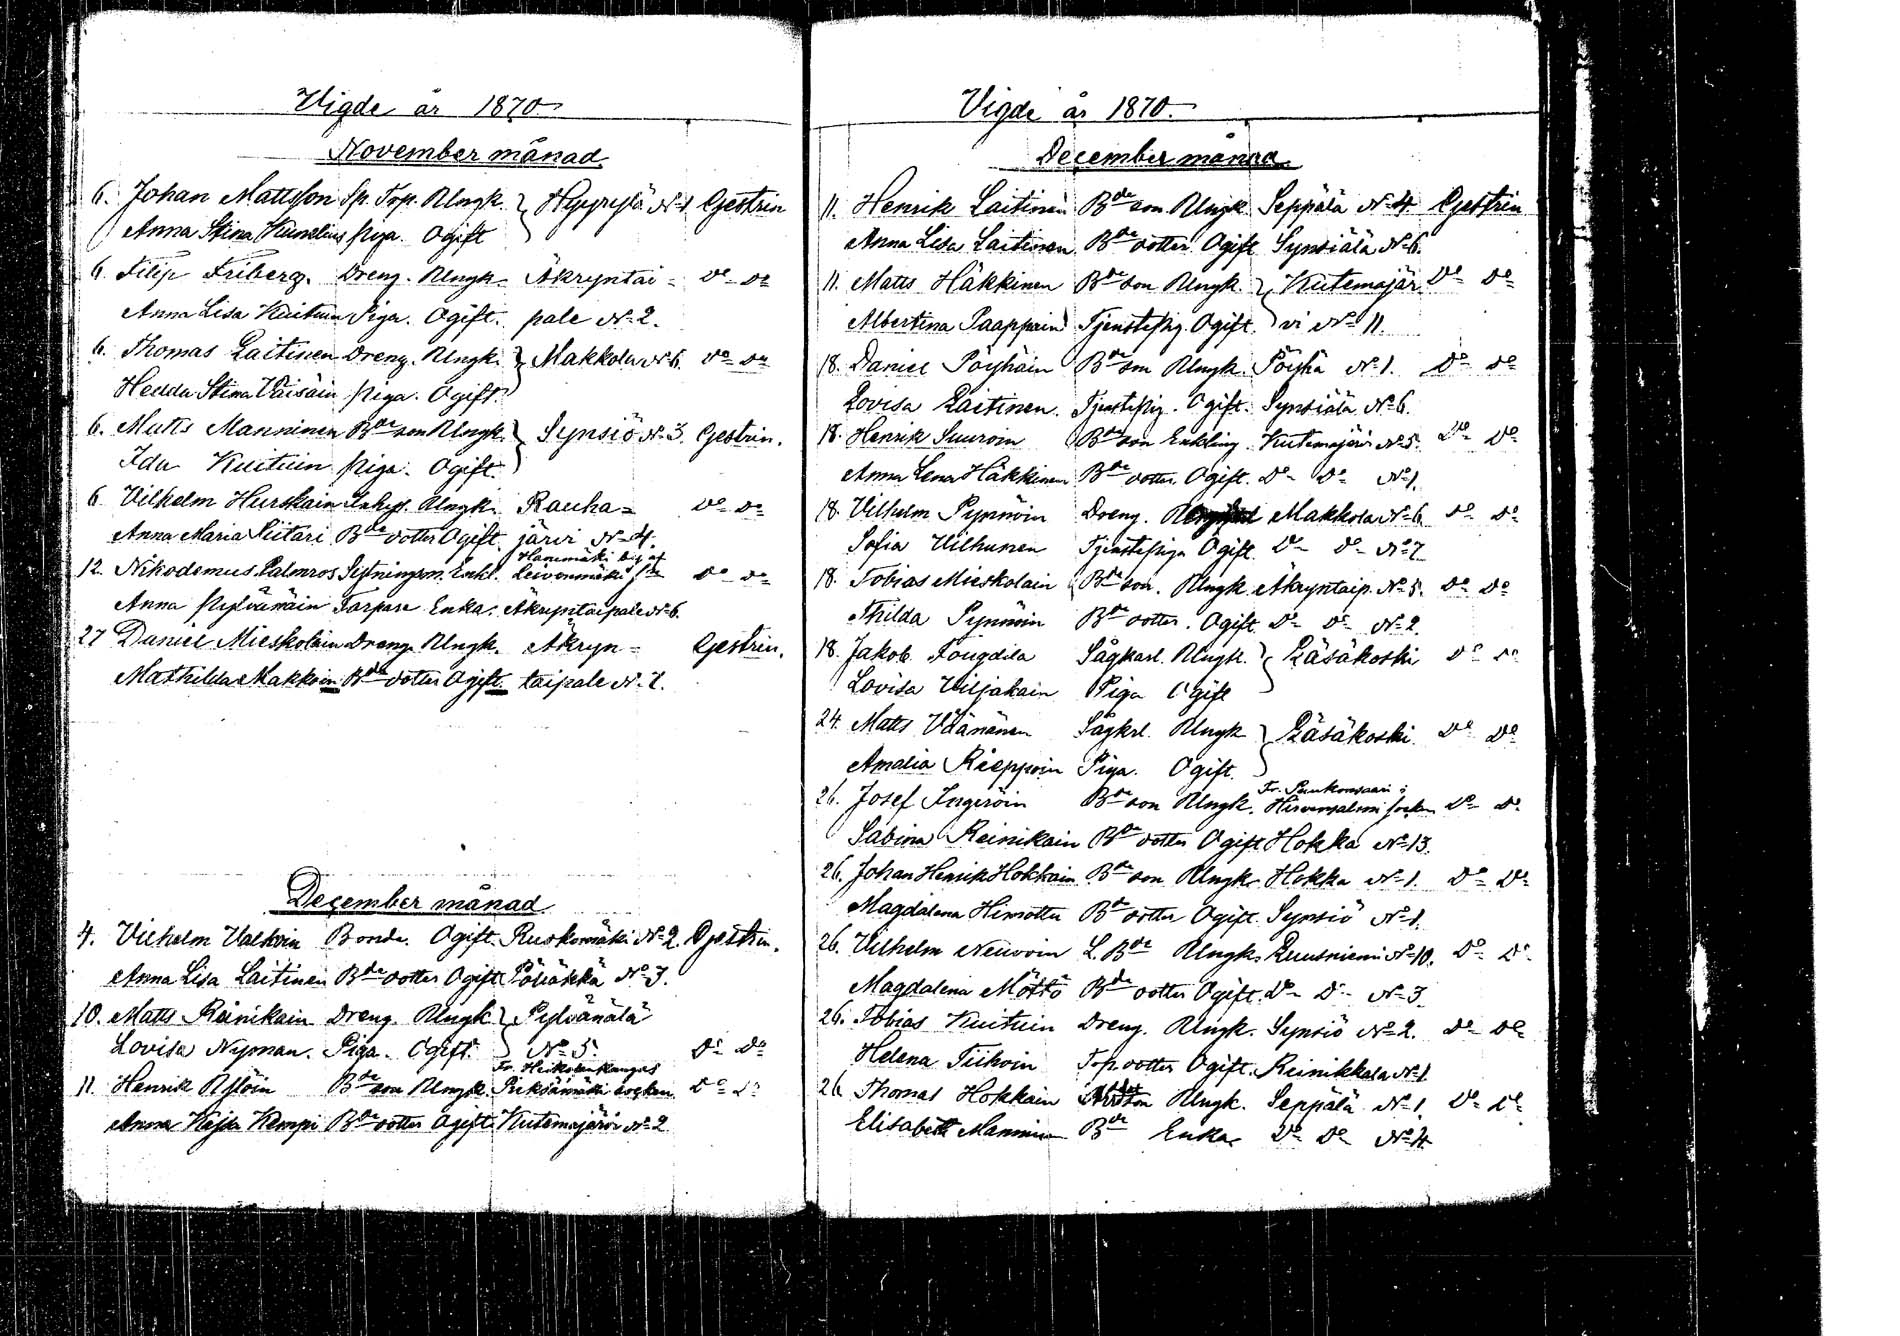 Vigde år 1870
November månad
6. Johan Mattsson Sp. Torp. Ungk. } Hypyrylä No 1 Gestrin
Anna Stina Kumelius piga. Ogift
6. Filip Friberg. Dreng. Ungk. Äkryntai= Do Do
Anna Lisa Kuituin Piga. Ogift. pale No 2.
6. Thomas Laitinen Dreng. Ungk. } Makkola No 6. Do Do
Hedda Stina Väisäin piga. Ogift
6. Matts Manninen Bde son Ungk. } Synsiö No 3. Gestrin.
Ida Kuituin piga. Ogift.
6 Vilhelm Hurskain Inhys. Ungk. Rauha= Do Do
Anna Maria Piitari Bde dotter Ogift. järvi No 4.
12. Nikodemus Palmros Sytningsm. Enkl. Leivonmäki Do Do
Anna Pylvämäin Torpare Enka. Äkryntaipale No 6.
27 Daniel Mieskolain Dreng. Ungk. Äkryn= Gestrin.
Mathilda Makkoin Bde dotter Ogift. taipale No 7.
December månad
4. Vilhelm Valkoin Bonde. Ogift. Ruokomäki No 2. Gestrin.
Anna Lisa Laitinen Bde dotter Ogift Pölläkkä No 3.
10. Matts Reinikain Dreng. Ungk } Pylvänälä
Lovisa Nyman. Piga. Ogift. No 5. Do Do
Fr. Heikolankangas
11. Henrik Pylöin Bde son Ungk. Pieksämäki socken Do Do
Anna Kajsa Kempi Bde dotter Ogift Kutemajärvi No 2
Vigde år 1870.
December månad
11. Henrik Laitinen Bde son Ungk Seppälä No 4 Gestrin
Anna Lisa Laitinen Bde dotter Ogift Synsiälä No 6.
11. Matts Häkkinen Bde son Ungk } Kutemajär Do Do
Albertina Paappain Tjenstepig. Ogift. vi No 11.
18. Daniel Pöyhöin Bde son Ungk. Pöyhä No 1. Do Do
Lovisa Laitinen. Tjenstepig. Ogift. Synsiälä No 6.
18. Henrik Suuroin Bde son Enkling Kutemajärvi No 5. Do Do
Anna Lena Häkkinen Bde dotter Ogift. Do Do No 1.
18. Vilhelm Pynnöin Dreng. Makkola No 6. Do Do
Sofia Vilhunen Tjenstepiga Ogift Do Do No 7
18. Tobias Mieskolain Bde son. Ungk Äkryntaip. No 5. Do Do
Thilda Pynnöin Bde dotter. Ogift Do Do No 2.
18. Jakob Fougdila Sågkarl. Ungk. } Läsäkoski Do Do
Lovisa Viljakain Piga Ogift
24. Matts Väänänen Sågkrl. Ungk } Läsäkoski Do Do
Amalia Rieppoin Piga. Ogift.
26. Josef Ingeröin Bde son Ungk. Hirvensalmi socken Do Do
Sabina Reinikain Bde dotter Ogift Hokka No 13.
26. Johan Henrik Hokkain Bde son Ungk. Hokka No 1. Do Do
Magdalena Himottu Bde dotter Ogift Synsiö No 1.
26. Vilhelm Neuvoin L. Bde Ungk. Ruusniemi No 10. Do Do
Magdalena Möttö Bde dotter Ogift. Do Do No 3.
26. Tobias Kuituin Dreng. Ungk. Synsiö No 2. Do Do
Helena Tiihoin Torp. dotter Ogift. Reinikkala No 1
26 Thomas Hokkain Ungk. Seppälä No 1. Do Do
Elisabeth Manninen Bde Enka Do Do No 4